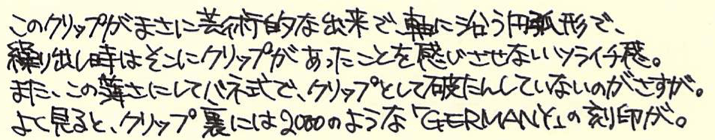 このクリップがまさに芸術的な出来で、軸に沿う円弧形で、
繰り出し時はそこにクリップがあったことを感じさせないツライチ感。
また、この薄さにしてバネ式で、クリップとして破たんしていないのがさすが。
よく見ると、クリップ裏には2000のような「GERMANY」の刻印が。